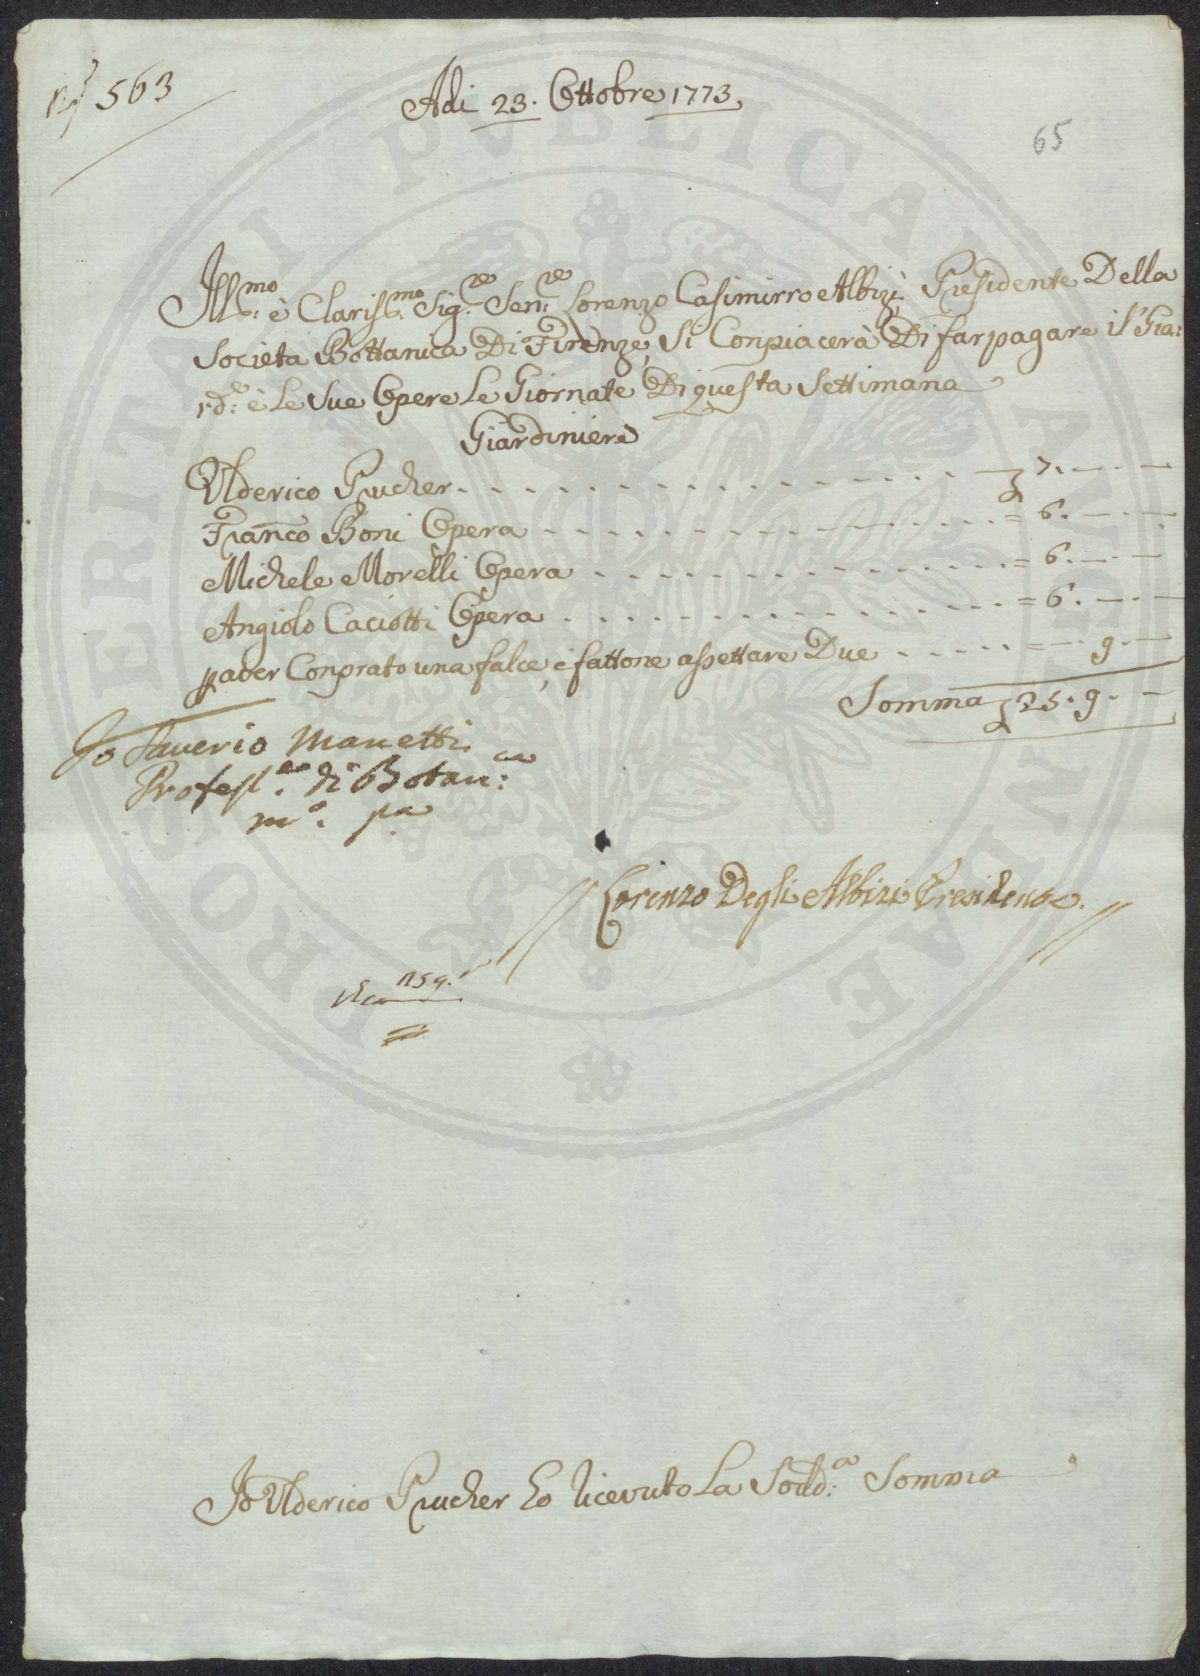 N° 563
Adi 23. Ottobre 1773.
65
Ill.mo è Clariss.mo Sig.re Sen.re Lorenzo Casimirro Albizi Presidente Della
Societa Bottanica Di Firenze, Si Conpiacerà Di far pagare il Giar:
rd.e è Le Sue Opere Le Giornate Di questa Settimana
Giardiniere
Ulderico Prucher . . . . . . . . . . . . . . . . 7. — . —
Franco Boni Opera . . . . . . . . . . . . . . . = 6. — . —
Michele Morelli Opera . . . . . . . . . . . . . = 6. — . —
Angiolo Caciotti Opera . . . . . . . . . . . . . = 6. — . —
p aver Conprato una falce, è fattone assettare Due . . . . . . = — . 9. —
Somma 25. 9. —
Io Saverio Manetti
Profess.re di Botan.ca
m.o pa
// Lorenzo Degli Albizi Presidente. //
Io Ulderico Prucher ho ricevuto La Sodd.a Somma
PROSPERITATI PUBLICAE